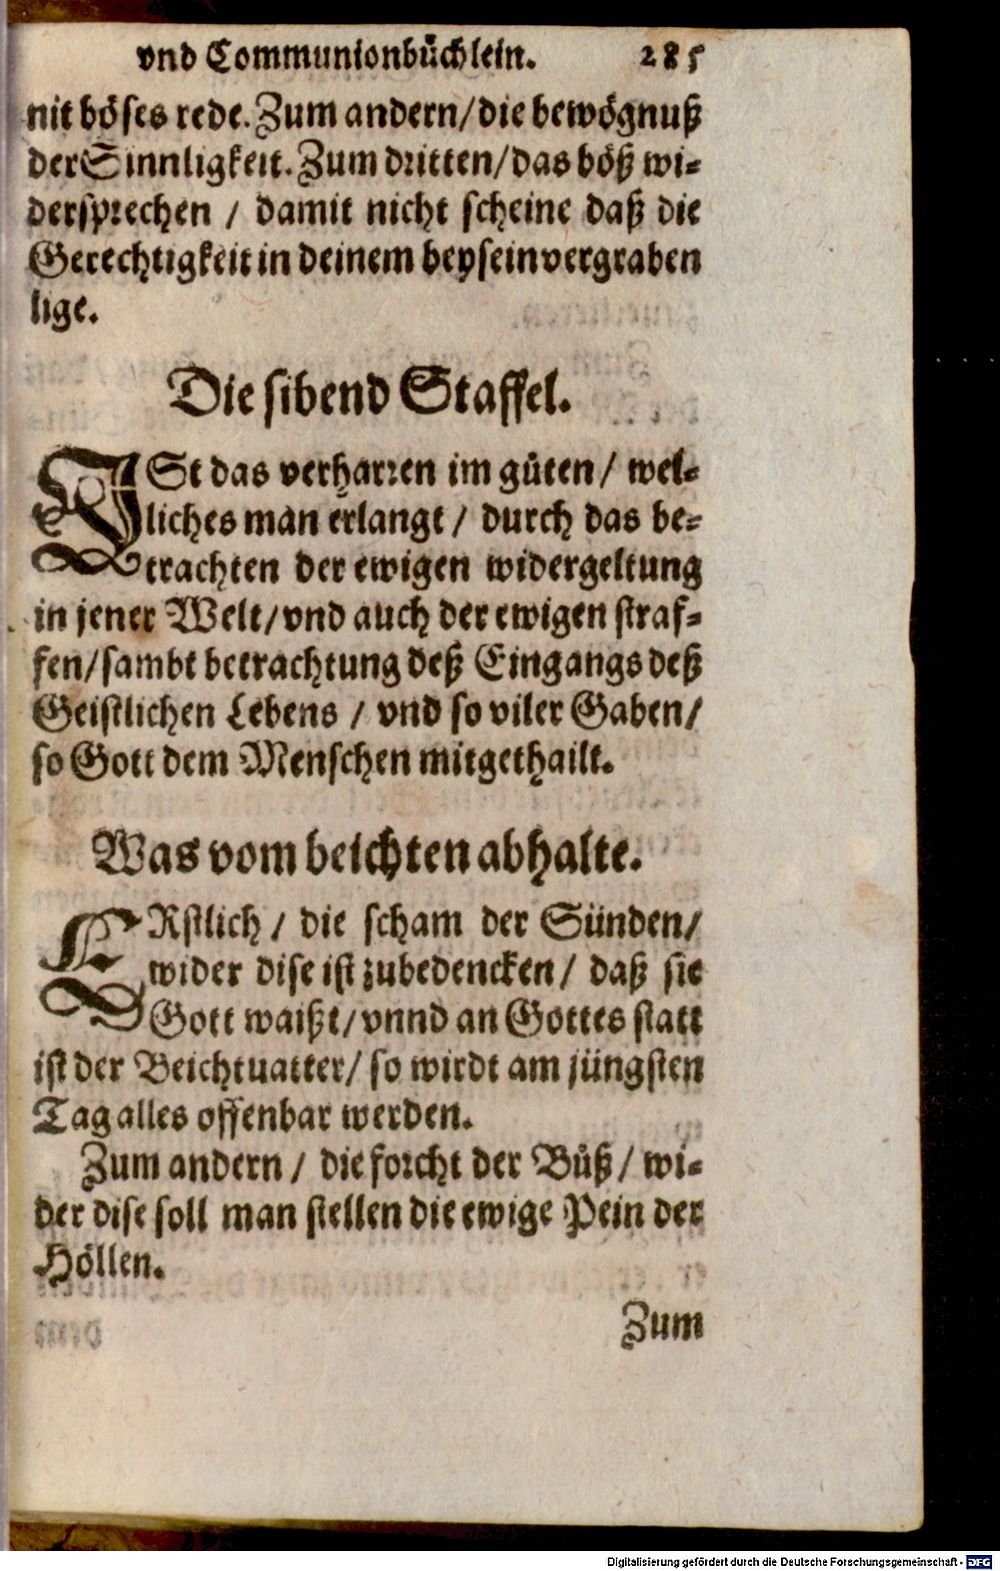 vnd Communionbüchlein. 285
nit böses rede. Zum andern/ die bewögnuß
der Sinnligkeit. Zum dritten/ das böß wi-
dersprechen / damit nicht scheine daß die
Gerechtigkeit in deinem beysein vergraben
lige.
Die sibend Staffel.
ISt das verharren im gůten/ wel-
liches man erlangt / durch das be-
trachten der ewigen widergeltung
in jener Welt/ vnd auch der ewigen straf-
fen/ sambt betrachtung deß Eingangs deß
Geistlichen Lebens / vnd so viler Gaben/
so Gott dem Menschen mitgethailt.
Was vom beichten abhalte.
ERstlich / die scham der Sünden/
wider dise ist zubedencken / daß sie
Gott waißt/ vnnd an Gottes statt
ist der Beichtuatter/ so wirdt am jüngsten
Tag alles offenbar werden.
Zum andern / die forcht der Bůß/ wi-
der dise soll man stellen die ewige Pein der
Höllen.
Zum
Digitalisierung gefördert durch die Deutsche Forschungsgemeinschaft - DFG